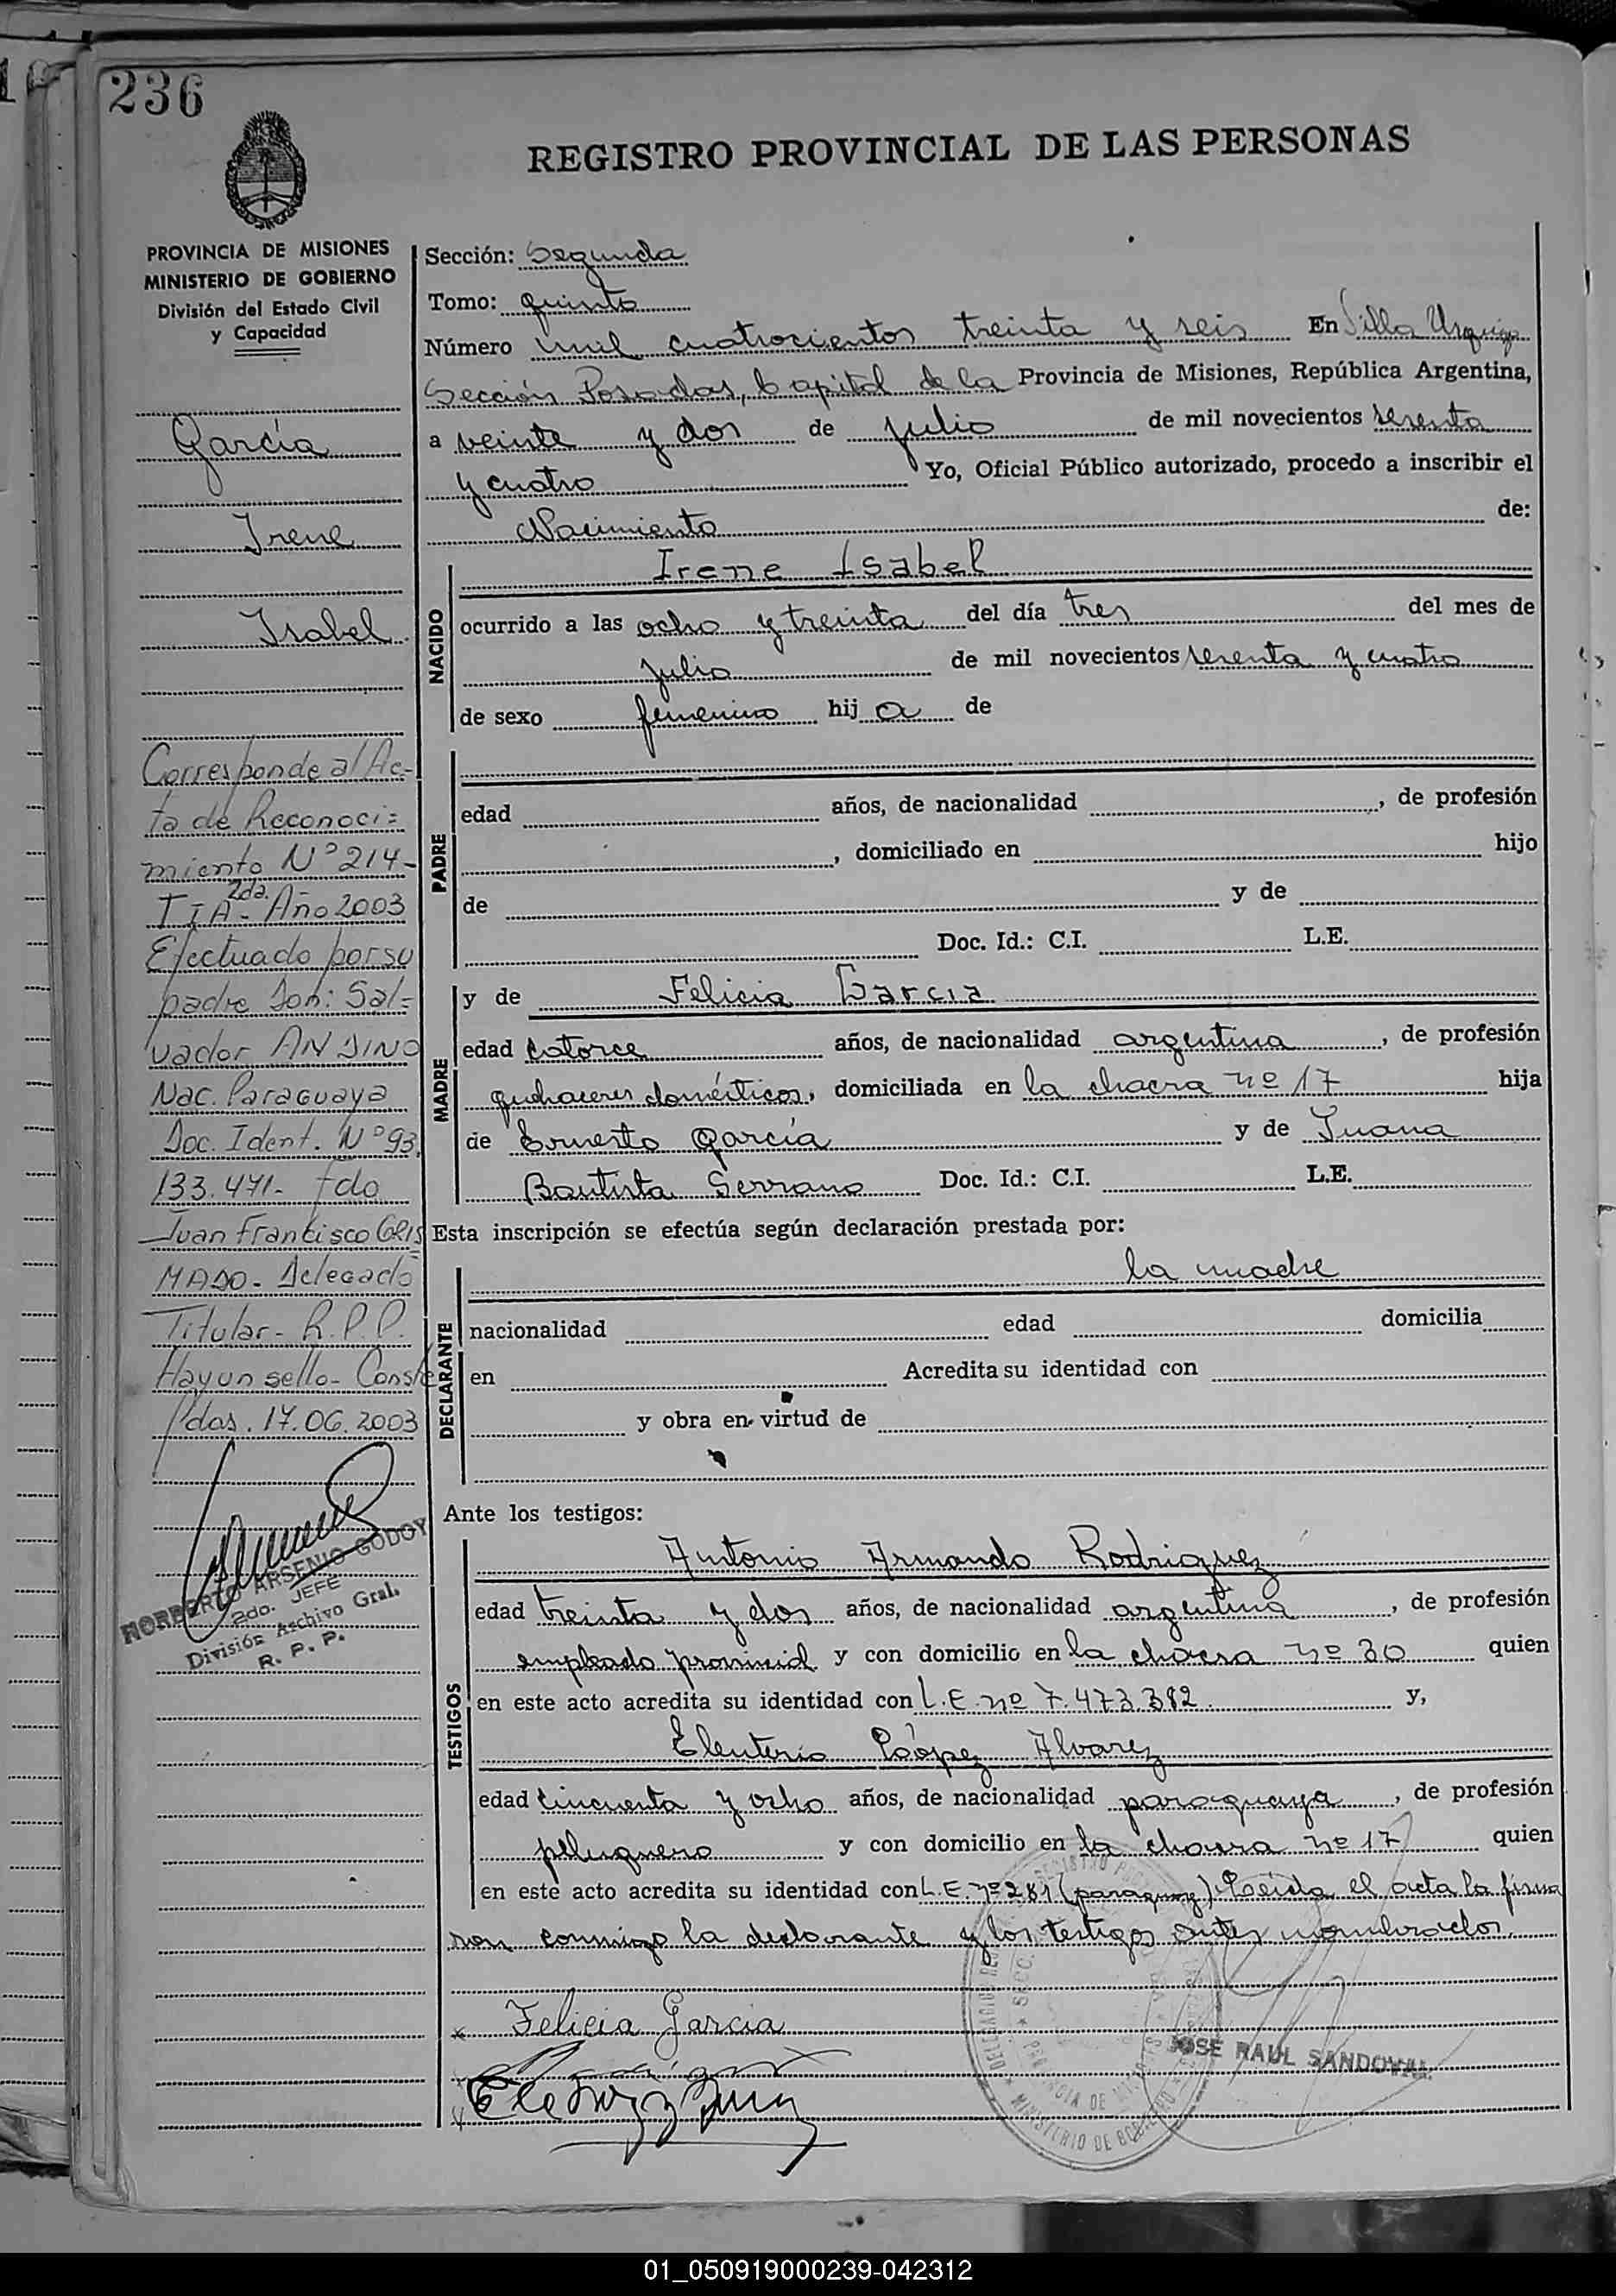 236
REGISTRO PROVINCIAL DE LAS PERSONAS
PROVINCIA DE MISIONES
MINISTERIO DE GOBIERNO
División del Estado Civil
y Capacidad
García
Irene
Isabel
Corresponde al Ac-
ta de Reconoci=
miento Nº 214-
T I A- 2da. Año 2003
Efectuado por su
padre Don: Sal=
vador ANDINO
Nac. Paraguaya
Doc. Ident. Nº 93.
133.471- fdo
Juan Francisco GRIS
MADO- Delegado
Titular- R.P.P.
Hay un sello- Conste
Pdas. 17.06.2003
NORBERTO ARSENIO GODOY
2do. JEFE
División Archivo Gral.
R. P. P.
Sección: Segunda
Tomo: quinto
Número mil cuatrocientos treinta y seis En Villa Urquiza
Sección Posadas, Capital de la Provincia de Misiones, República Argentina,
a veinte y dos de julio de mil novecientos sesenta
y cuatro Yo, Oficial Público autorizado, procedo a inscribir el
Nacimiento de:
NACIDO
Irene Isabel
ocurrido a las ocho y treinta del día tres del mes de
julio de mil novecientos sesenta y cuatro
de sexo femenino hij a de
PADRE
edad años, de nacionalidad , de profesión
, domiciliado en hijo
de y de
Doc. Id.: C.I. L.E.
MADRE
y de Felicia Garcia
edad catorce años, de nacionalidad argentina , de profesión
quehaceres domésticos, domiciliada en la chacra nº 17 hija
de Ernesto García y de Juana
Bautista Serrano Doc. Id.: C.I. L.E.
Esta inscripción se efectúa según declaración prestada por:
DECLARANTE
la madre
nacionalidad edad domicilia
en Acredita su identidad con
y obra en virtud de
Ante los testigos:
TESTIGOS
Antonio Armando Rodriguez
edad treinta y dos años, de nacionalidad argentina , de profesión
empleado provincial y con domicilio en la chacra nº 30 quien
en este acto acredita su identidad con L.E. nº 7.473.382. y,
Eleuterio Lóopez Alvarez
edad cincuenta y ocho años, de nacionalidad paraguaya , de profesión
peluquero y con domicilio en la chacra nº 17 quien
en este acto acredita su identidad con L.E. nº 281 (paraguay). Leída el acta la firma
ron conmigo la declarante y los testigos antes nombrados.
x Felicia Garcia
JOSE RAUL SANDOVAL
MINISTERIO DE GOBIERNO
01_050919000239-042312